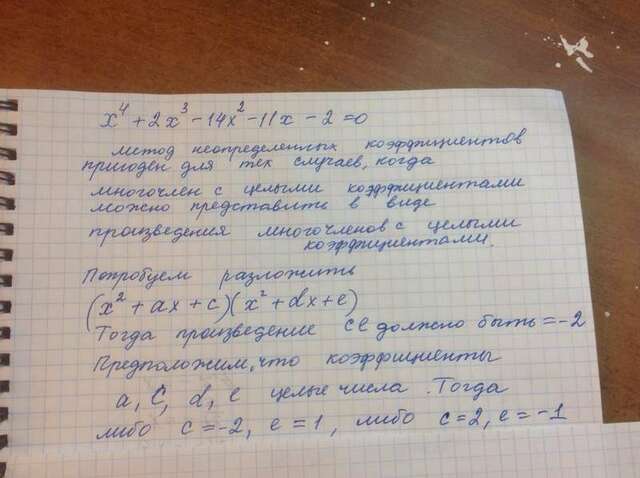 x⁴ + 2x³ - 14x² - 11x - 2 = 0
метод неопределенных коэффициентов
пригоден для тех случаев, когда
многочлен с целыми коэффициентами
можно представить в виде
произведения многочленов с целыми
коэффициентами.
Попробуем разложить
(x² + ax + c)(x² + dx + e)
Тогда произведение ce должно быть = -2
Предположим, что коэффициенты
a, c, d, e целые числа. Тогда
либо c = -2, e = 1, либо c = 2, e = -1